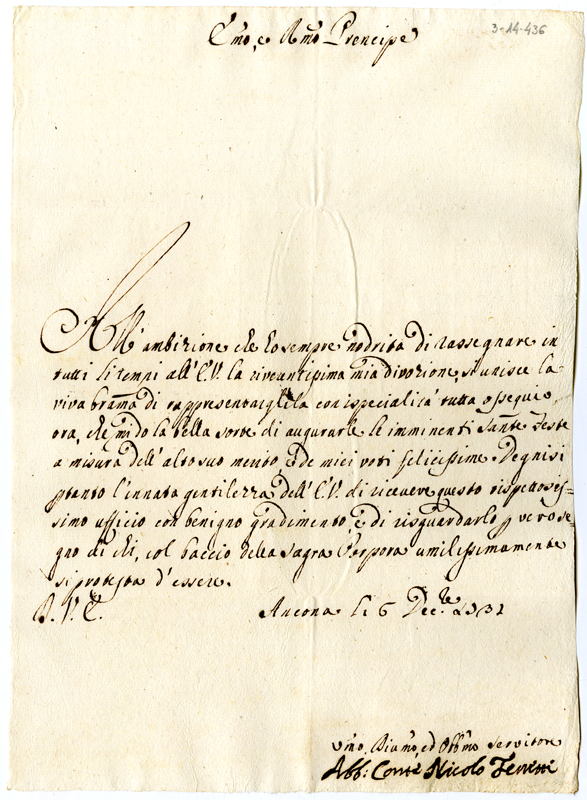 3-14-436
Emo, e Rmo Prencipe
All'ambizione che ho sempre nodrita di rassegnare in
tutti li tempi all'E.V. la riverentissima mia divozione, si unisce la
viva brama di rappresentargliela con ispecialità tutta ossequio
ora, che mi do la bella sorte di augurarle le imminenti Sante Feste
a misura dell'alto suo merito, e de miei voti felicissime. Degnisi
ptanto l'innata gentilezza dell'E.V. di ricevere questo rispettosis=
simo ufficio con benigno gradimento, e di risguardarlo p vero se
gno di chi, col baccio della Sagra Porpora umilissimamente
si protesta d'essere.
D. V. E. Ancona li 6 Dec.re
Umo, Divmo, ed Obbmo Servitore
Abb: Conte Nicolo Ferretti